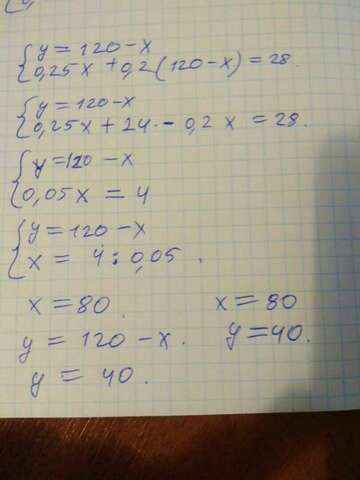 y = 120 - x
0,25x + 0,2(120 - x) = 28
y = 120 - x
0,25x + 24 - 0,2x = 28.
y = 120 - x
0,05x = 4
y = 120 - x
x = 4 : 0,05.
x = 80 x = 80
y = 120 - x. y = 40.
y = 40.